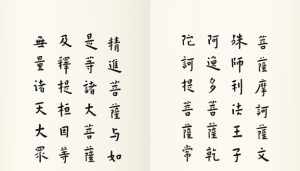 菩薩摩訶薩文
殊師利法王子
阿逸多菩薩乾
陀訶提菩薩常
精進菩薩与如
是等諸大菩薩
及釋提桓因等
無量诸天大眾